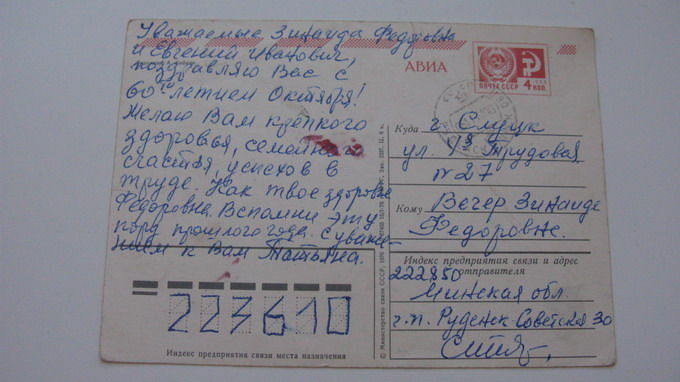 Уважаемые Зинаида Федоровна
и Евгений Иванович,
поздравляю Вас с
60-летием Октября!
Желаю Вам крепкого
здоровья, семейного
счастья, успехов в
труде. Как твое здоровье
Федоровна. Вспомни эту
пору прошлого года. С уваже-
нием к Вам Татьяна.
223610
Индекс предприятия связи места назначения
АВИА
ПОЧТА СССР
4 коп.
Куда г. Слуцк
ул. 1я Трудовая
N 27
Кому Вечер Зинаиде
Федоровне.
Индекс предприятия связи и адрес
отправителя
222850
Минская обл.
г.п. Руденск-Советская 30
© Министерство связи СССР